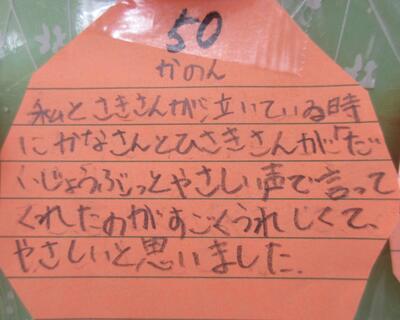 50
かのん
私とさきさんが泣いている時
にかなさんとひさきさんが「だ
いじょうぶ」っとやさしい声で言って
くれたのがすごくうれしくて、
やさしいと思いました.